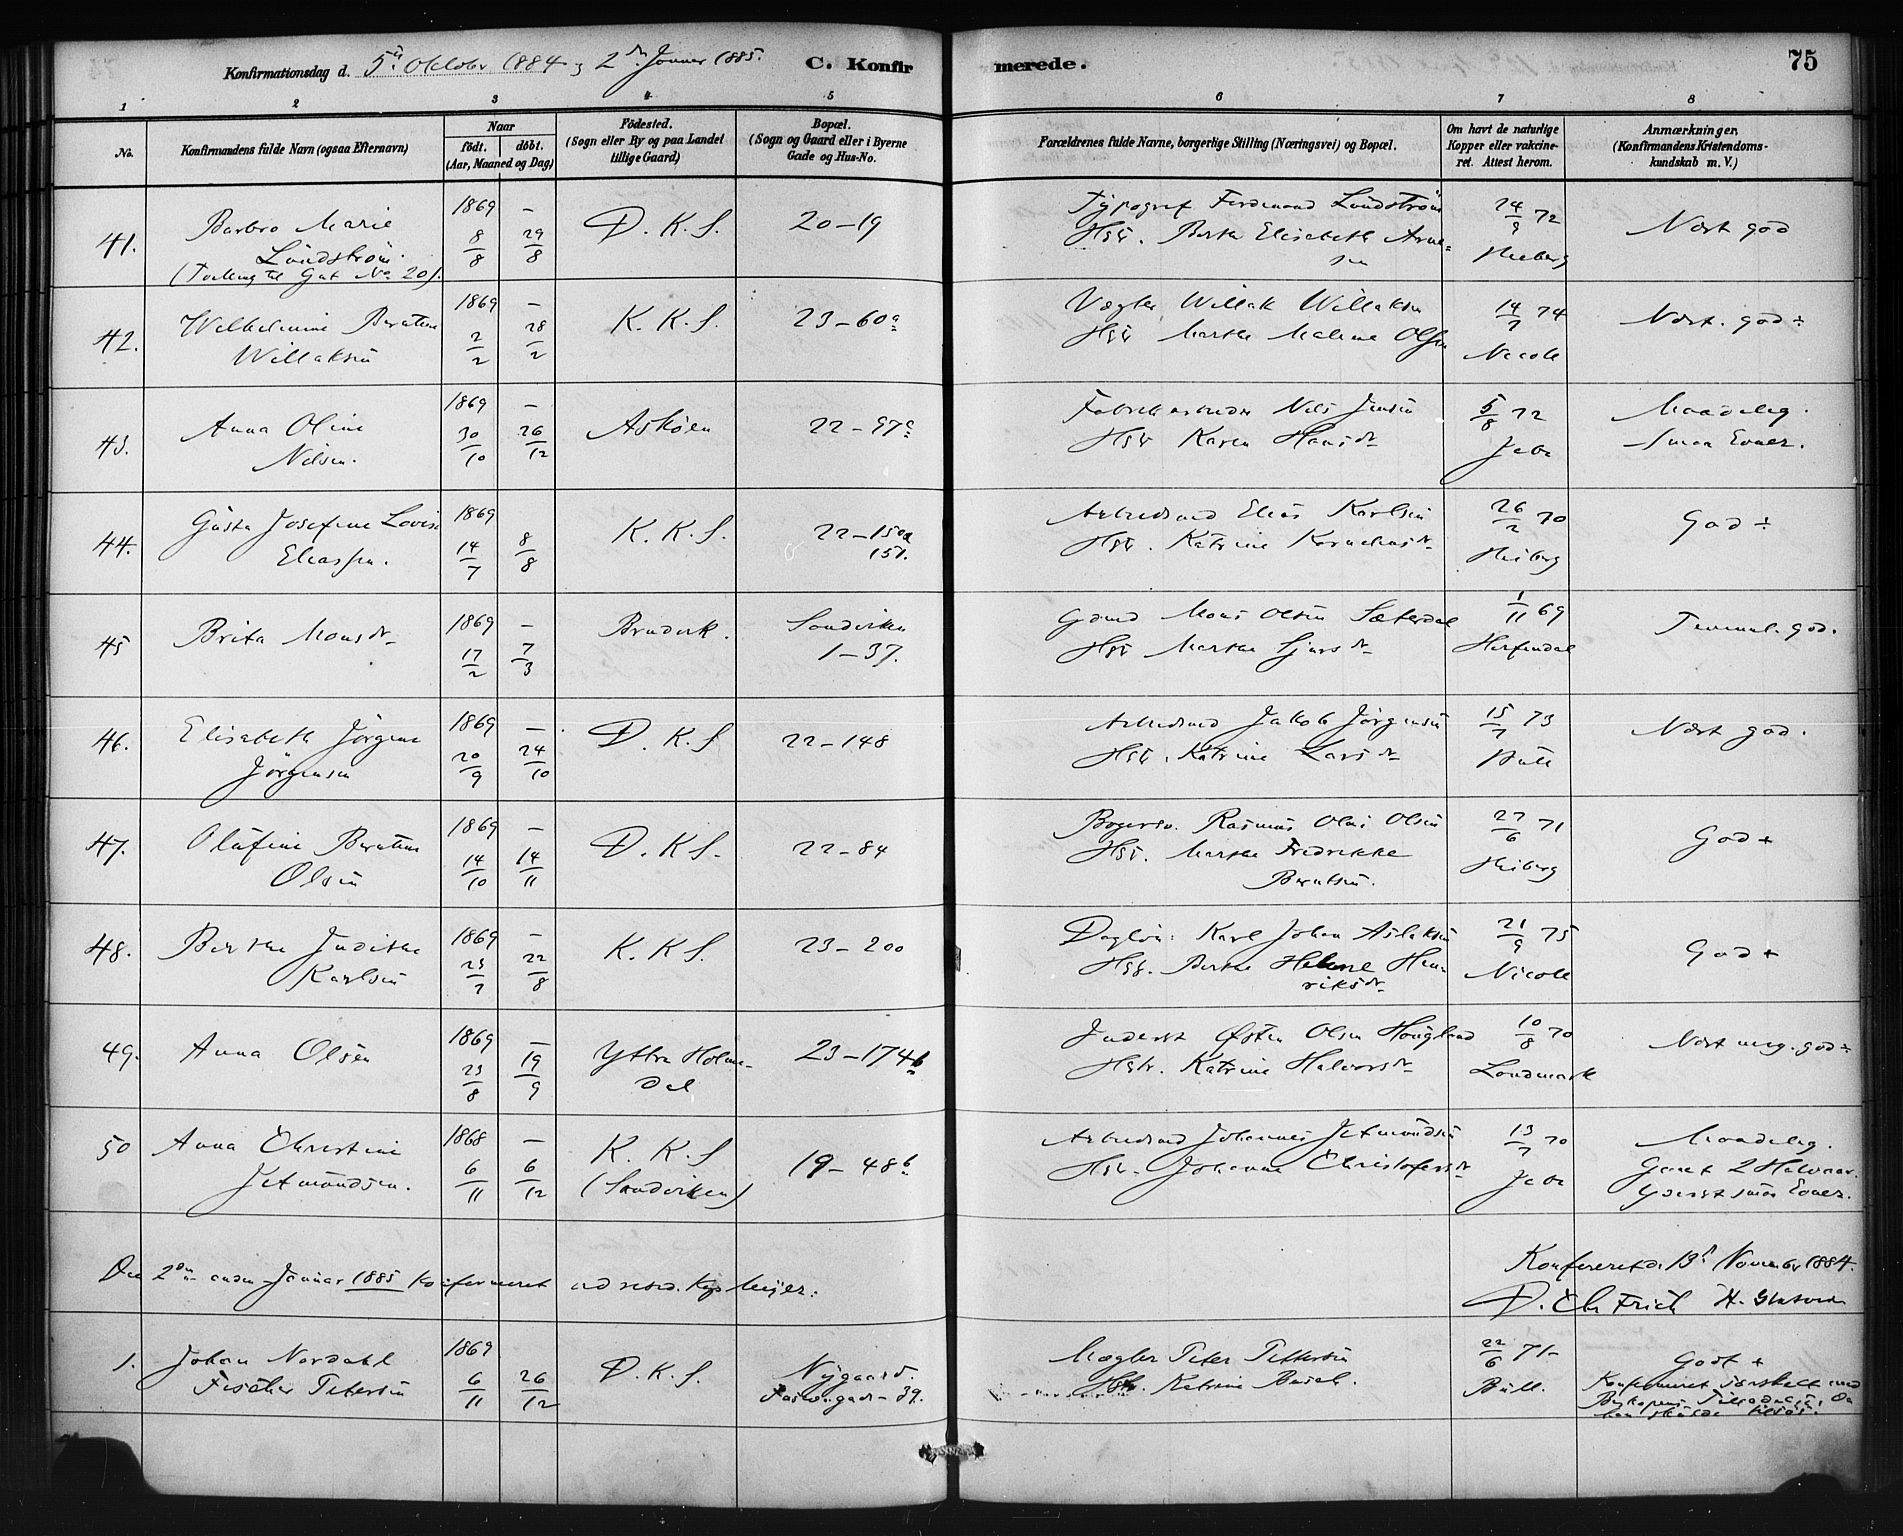 Konfirmationsdag d. 5te Oktober 1884 og 2den Januar 1885. C. Konfirmerede. 75
1 2 3 4 5 6 7 8
No.
Konfirmandens fulde Navn (ogsaa Efternavn)
Naar
født. døbt.
(Aar, Maaned og Dag)
Fødested.
(Sogn eller By og paa Landet
tillige Gaard)
Bopæl.
(Sogn og Gaard eller i Byerne
Gade og Hus-No.
Forældrenes fulde Navne, borgerlige Stilling (Næringsvei) og Bopæl.
Om havt de naturlige
Kopper eller vakcine-
ret. Attest herom.
Anmærkninger.
(Konfirmandens Kristendoms-
kundskab m. V.)
41. Barbro Marie
Lundström.
(Tvilling til Gut No 20).
1869 8/8 – 29/8
D. K. S.
20–19
Typograf Ferdinand Lundström
Hstr. Berthe Elisabeth Arne-
sen
24/9 72
Heiberg
Næst god
42. Wilhelmine Berntine
Willaksen
1869 2/2 – 28/2
K. K. S.
23–60a
Vægter Willak Willaksen
Hstr Marthe Malene Olsen
14/7 74
Nicole
Næst. god ÷
43. Anna Oline
Nilsen.
1869 30/10 – 26/12
Askøen
22–97a
Fabrikarbeider Nils Jensen
Hstr Karen Hansdr
5/8 72
Jebe
Maadelig.
Smaa Evner.
44. Gusta Josefine Lovise
Eliassen.
1869 14/7 8/8
K. K. S.
22–150a
151.
Arbeidsmd Elias Karlsen
Hstr. Katrine Korneliusdr
26/2 70
Heiberg
God ÷
45 Brita Monsdr
1869 17/2 – 7/3
Bruvik.
Sandviken
1–37.
Gdmd Mons Olsen Sæterdal
Hstr Marthe Sjursdr
1/11 69
Herfindal
Temmel. god.
46. Elisabeth Jørgine
Jørgensen
1869 20/9 – 24/10
D. K. S
22–148
Arbeidsmd Jakob Jørgensen
Hstr. Katrine Larsdr
15/7 73
Bull
Næst god.
47. Olufine Berntine
Olsen
1869 14/10 – 14/11
D. K S.
22–84
Borgersv. Rasmus Olai Olsen
Hstr. Marthe Fredrikke
Berntsen.
27/6 71
Heiberg
God +
48. Berthe Judithe
Karlsen
1869 23/7 – 22/8
K. K S.
23–200
Daglön: Karl Johan Aslaksen
Hstr. Berthe Helene Hen-
riksdr
21/9 75
Nicole
God +
49. Anna Olsen
1869 23/8 – 19/9
Yttre Holme-
dal
23–174b
Inderst Østen Olsen Hovgland
Hstr. Katrine Halvorsdr
10/8 70
Landmark
Næst meg. god ÷
50 Anna Christine
Jetmundsen.
1868 6/11 – 6/12
K. K. S
(Sandviken)
19–48b
Arbeidsmd Johannes Jetmundsen
Hstr. Johanne Christofersdr
13/7 70
Jebe
Maadelig.
Gaaet 2 Halvaar.
Yderst smaa Evner.
Konfereret d. 13d November 1884.
Den 2den anden Januar 1885 konfirmeret ved resid. Kap. Meijer.
D. Chr Frich
1. Johan Nordahl
Fischer Petersen
1869 6/11 26/12
D. K. S.
Nygaard.
39.
Mægler Peter Pettersen
Hstr. Katrine Busch.
22/6 71
Bull.
Godt +
Konfirmeret særskilt med
Biskopens Tilladelse, da
han skulde tilsøs.